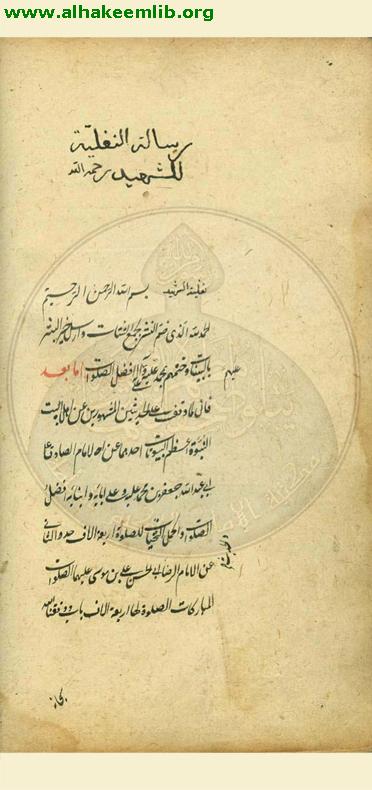 www.alhakeemlib.org
رسالة النفلية
للشهيد رحمه الله
نفلية الشهيد بسم الله الرحمن الرحيم
الحمد لله الذي ضم النشر بجمع الشتات وارسل خير البشر
بالبينات وختمهم بمحمد عليه وآله افضل الصلوات اما بعد
عليهم
فاني لما وقفت على الحديثين المشهورين عن اهل البيت
النبوة اعظم البيوتات احدهما عن الامام الصادق
ابي عبد الله جعفر بن محمد عليه وعلى ابائه وابنائه افضل
الصلوات واكمل التحيات للصلوة اربعة الاف حد والثاني
عن الامام الرضا ابي الحسن علي بن موسى عليهما الصلوات
المباركات الصلوة لها اربعة الاف باب ووفق الله